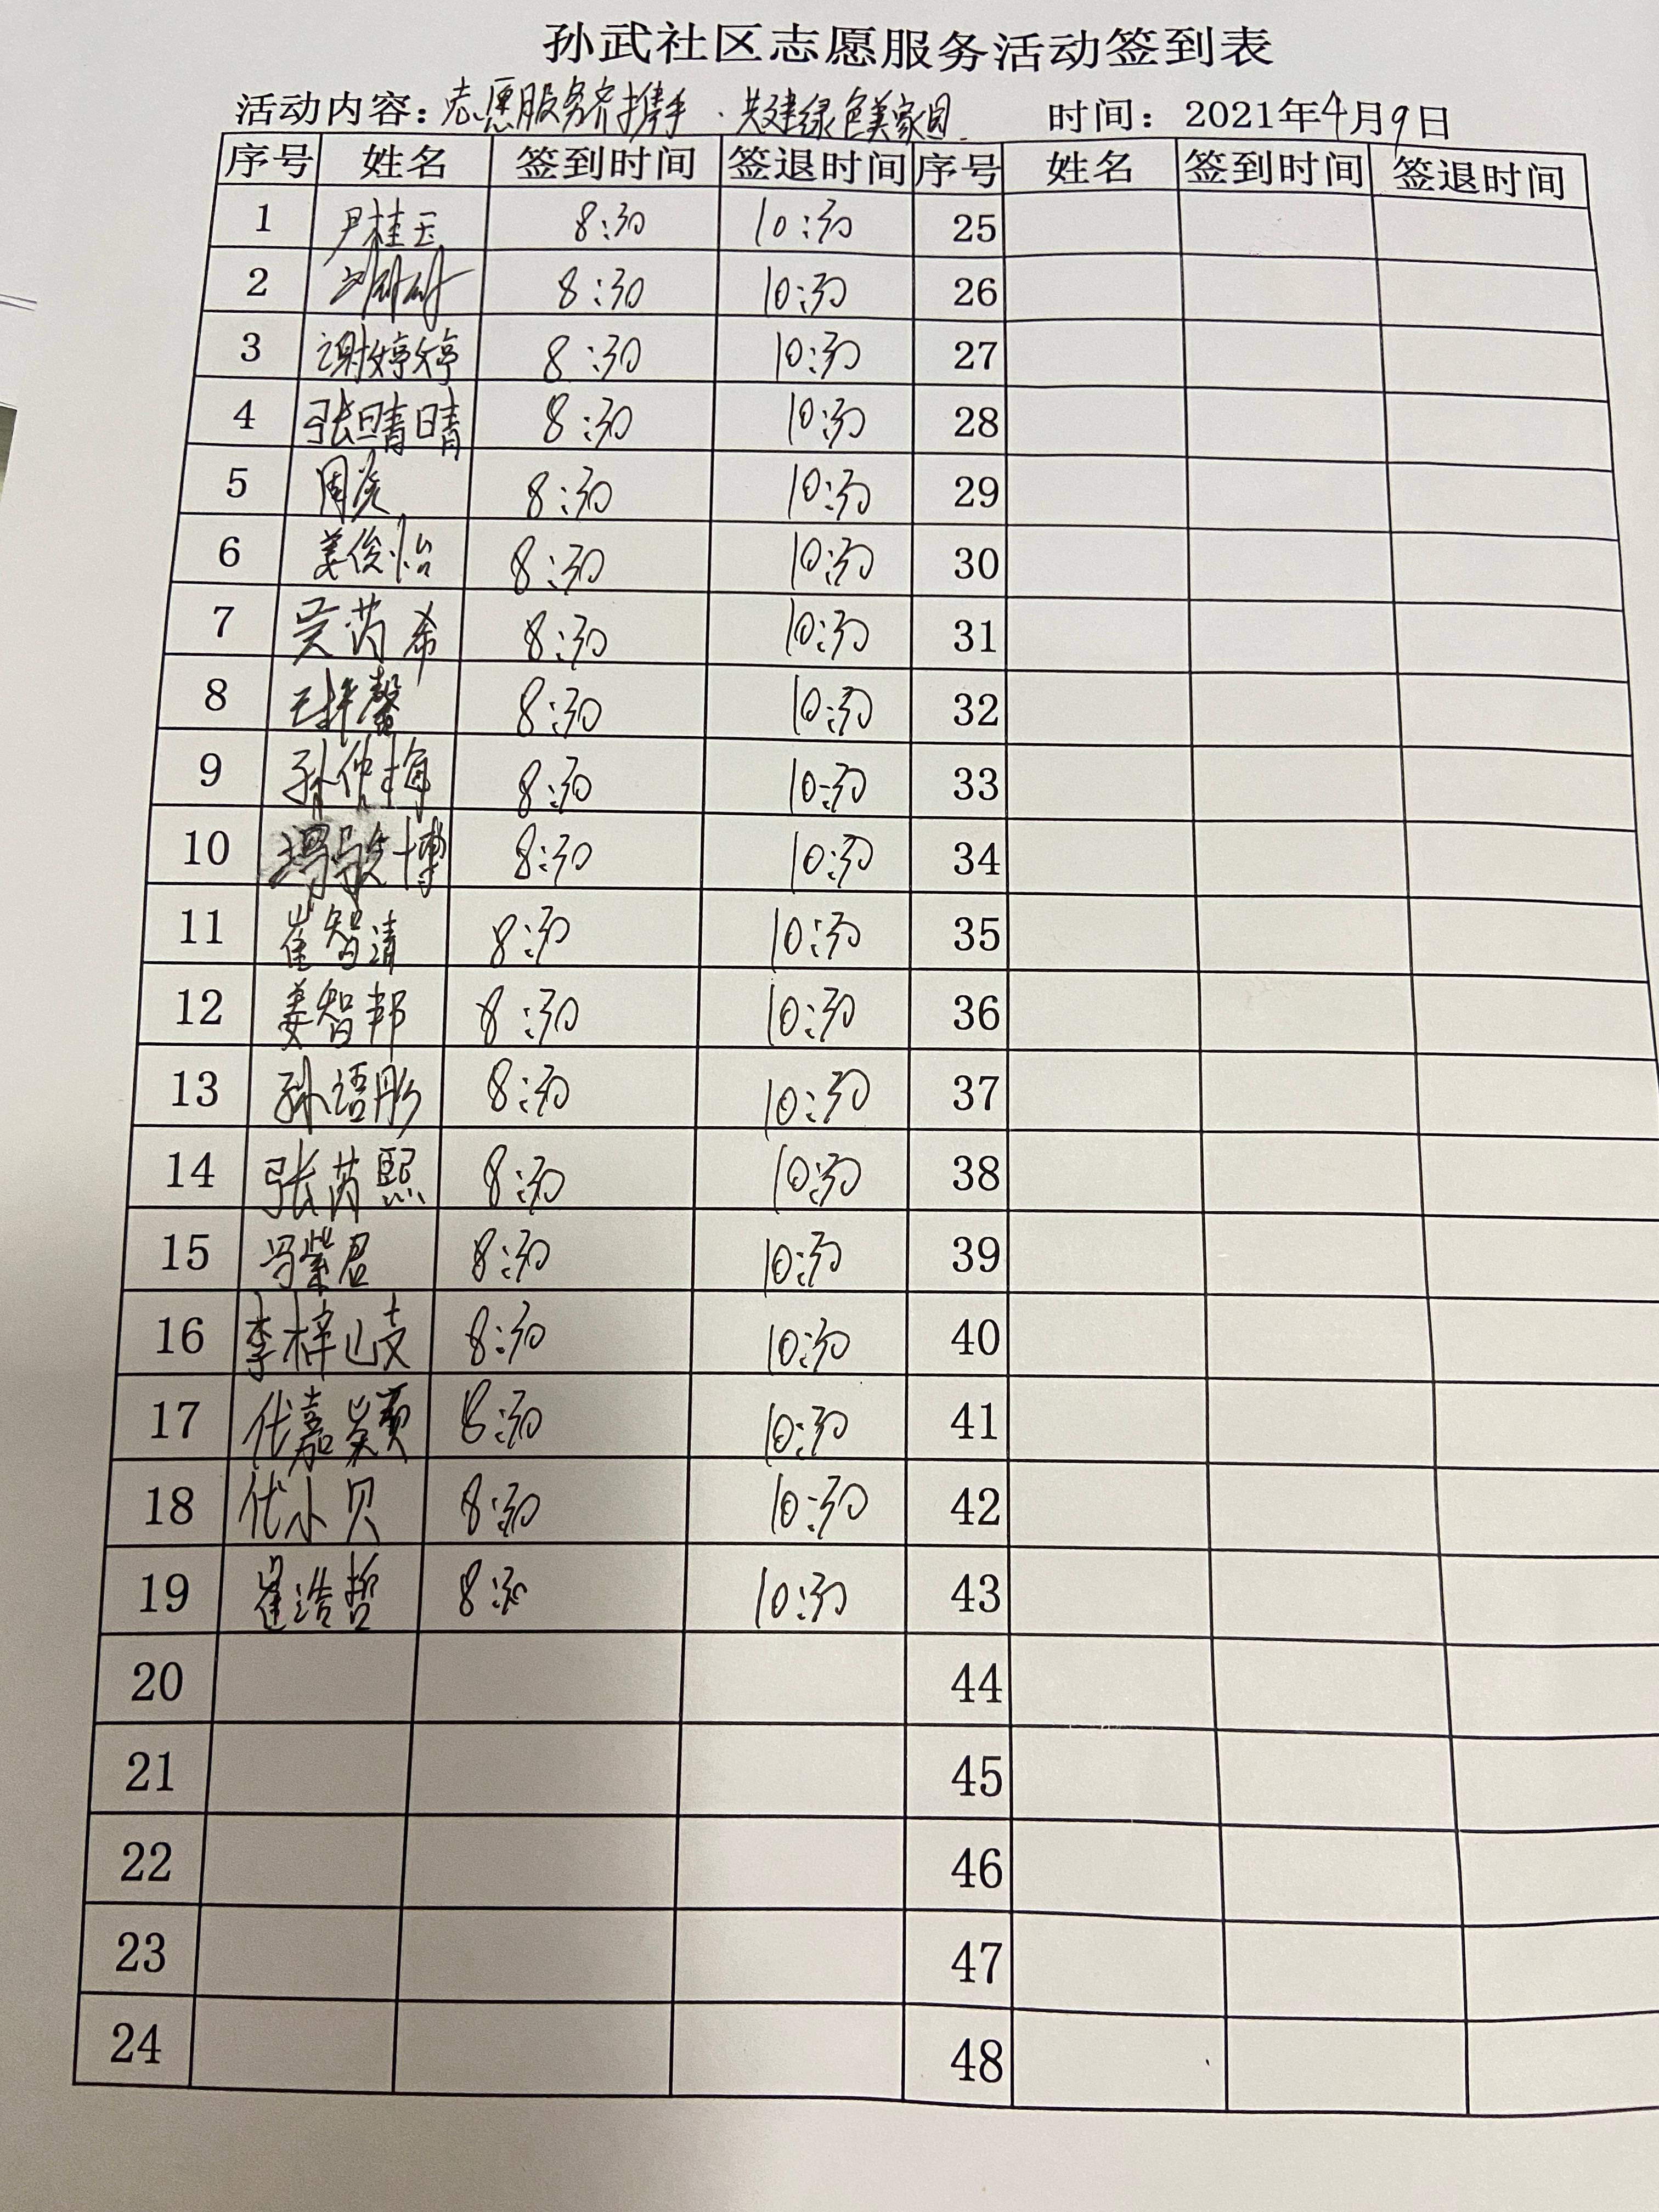 孙武社区志愿服务活动签到表
活动内容：志愿服务齐携手·共建绿色美家园. 时间：2021年4月9日
序号 姓名 签到时间 签退时间 序号 姓名 签到时间 签退时间
1 尹桂玉 8:30 10:30 25
2 8:30 10:30 26
3 谢婷婷 8:30 10:30 27
4 张晴晴 8:30 10:30 28
5 周 8:30 10:30 29
6 姜俊怡 8:30 10:30 30
7 吴芮希 8:30 10:30 31
8 王梓馨 8:30 10:30 32
9 孙仲梅 8:30 10:30 33
10 冯敬博 8:30 10:30 34
11 崔智清 8:30 10:30 35
12 姜智邦 8:30 10:30 36
13 孙语彤 8:30 10:30 37
14 张芮熙 8:30 10:30 38
15 冯紫君 8:30 10:30 39
16 李梓 8:30 10:30 40
17 代嘉颖 8:30 10:30 41
18 代小贝 8:30 10:30 42
19 崔浩哲 8:30 10:30 43
20 44
21 45
22 46
23 47
24 48